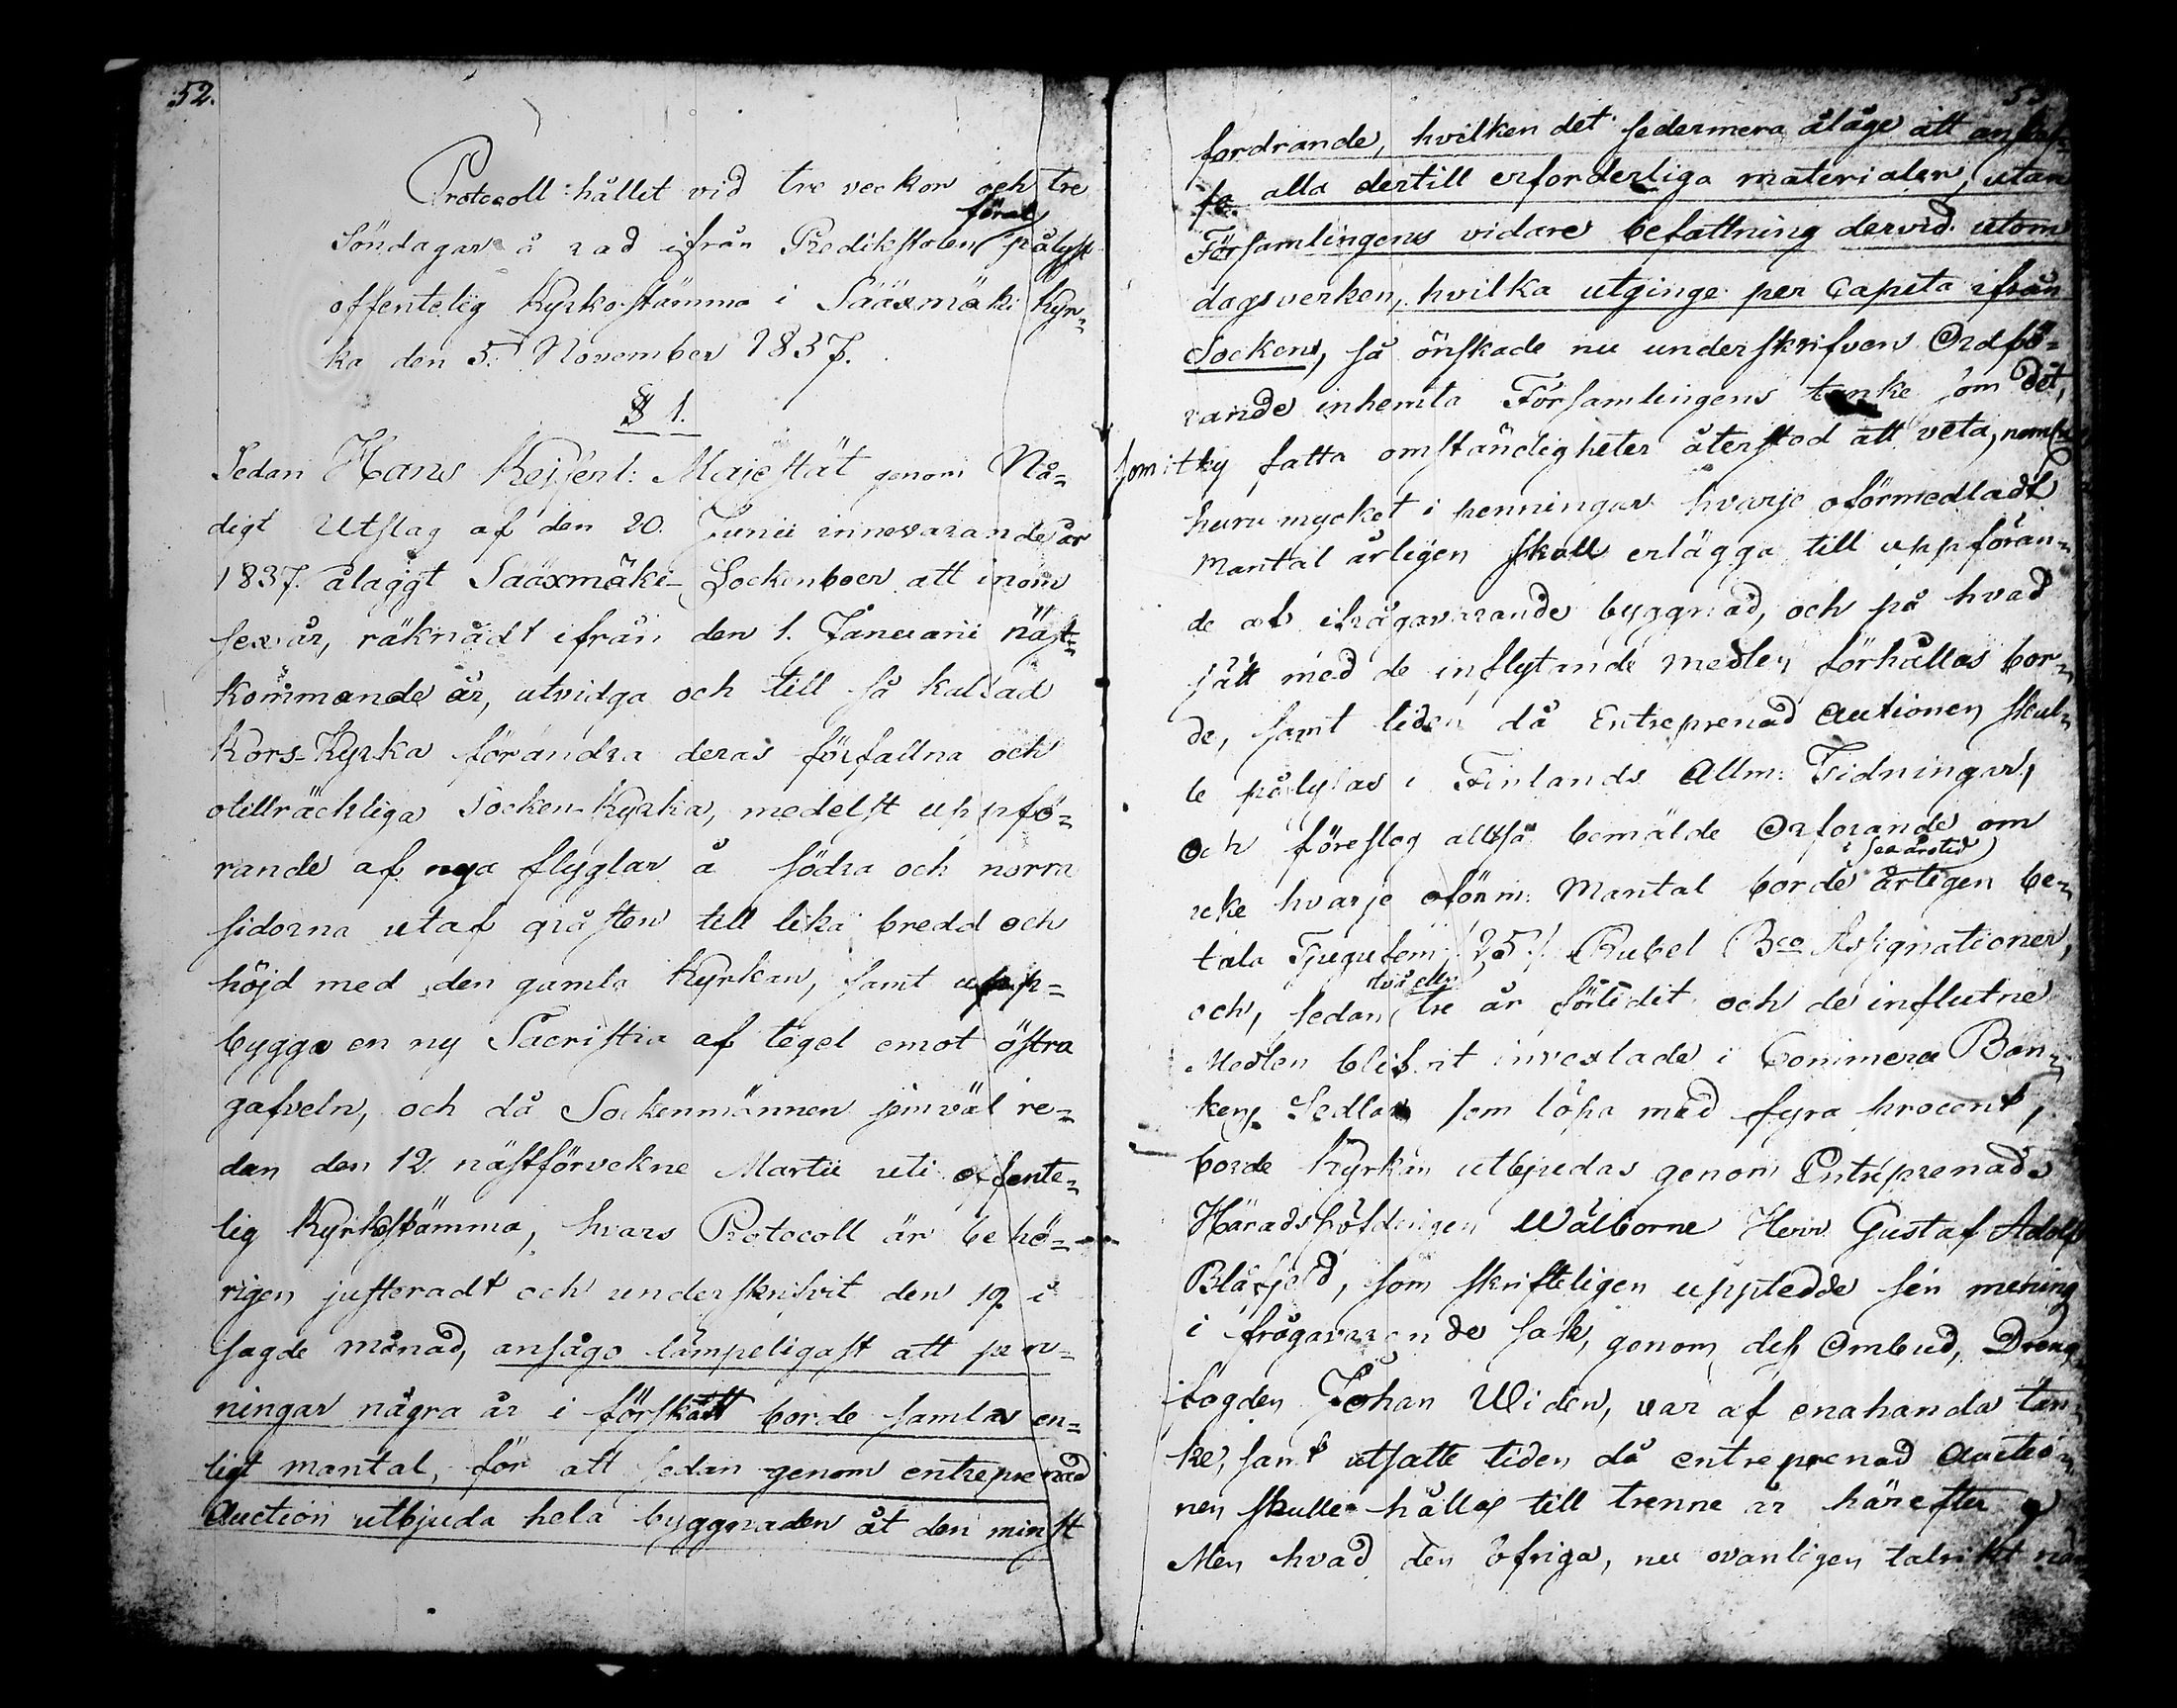 52.
Protocoll hållet vid tre veckor och tre
förut
Söndagar å rad ifrån Predikstolen pålyst
offentelig Kyrkostämma i Sääxmäki Kyr=
ka den 5. November 1837.
§ 1.
Sedan Hans Kejserl: Majestät genom Nå=
digt Utslag af den 20. Junii innevarande år
1837. ålaggt Sääxmäki Sockenboer att inom
sex år, räknadt ifrån den 1. Januarii näst=
kommande år, utvidga och till så kallad
Kors-Kyrka förändra deras förfallna och
otillräckliga Socken-Kyrka, medelst uppfö=
rande af nya flyglar å södra och norra
sidorna utaf gråsten till lika bredd och
höjd med den gamla Kyrkan, samt upp=
bygga en ny Sacristia af tegel emot östra
gafveln, och då Sockenmännen jemväl re=
dan den 12 nästförvekne Martii uti offente=
lig Kyrkostämma, hvars Protocoll är behö=
rigen justeradt och underskrifvit den 19 i
sagde månad, ansågo lämpeligast att pen=
ningar några år i förskått borde samlas en=
ligt mantal, för att sedan genom entreprenad
Auction utbjuda hela byggnaden åt den minst
53
fordrande, hvilken det sedermera ålåge att anskaf=
fa alla dertill erforderliga materialer, utan
Församlingens vidare befattning dervid utom
dagsverken, hvilka utginge per Capita ifrån
Sockens, så önskade nu underskrifven Ordfö=
rande inhemta Församlingens tanke om det,
som i ty fatta omständigheter återstod att veta, neml:
huru mycket i penningar hvarje oförmedladt
Mantal årligen skall erlägga till uppföran=
de af ifrågavarande byggnad, och på hvad
sätt med de inflytande medlen förhållas bor=
de, samt tiden då Entreprenad Auctionen skul=
le pålysas i Finlands Allm: Tidningar,
Och föreslog alltså bemälde Orforande om
i sex årstid
icke hvarje oförm: Mantal borde årligen be=
tala Tjugufem /25/ Rubel Bco Assignationer,
två eller
och, sedan tre år förlidit och de influtne
Medlen blifvit invexlade i Commerce Ban=
kens Sedlar som löpa med fyra procent,
borde Kyrkan utbjudas genom Entreprenad
Häradshöfdingen Wälborne Herr Gustaf Adolf
Blåfjeld, som skrifteligen upptedde sin mening
i frågavarande sak, genom dess Ombud, Dreng
fogden Johan Widen, var af enahanda tan=
ke, samt utsatte tiden då entreprenad Auctio=
nen skulle hållas till trenne år härefter
Men hvad den öfriga, nu ovanligen talrikt när